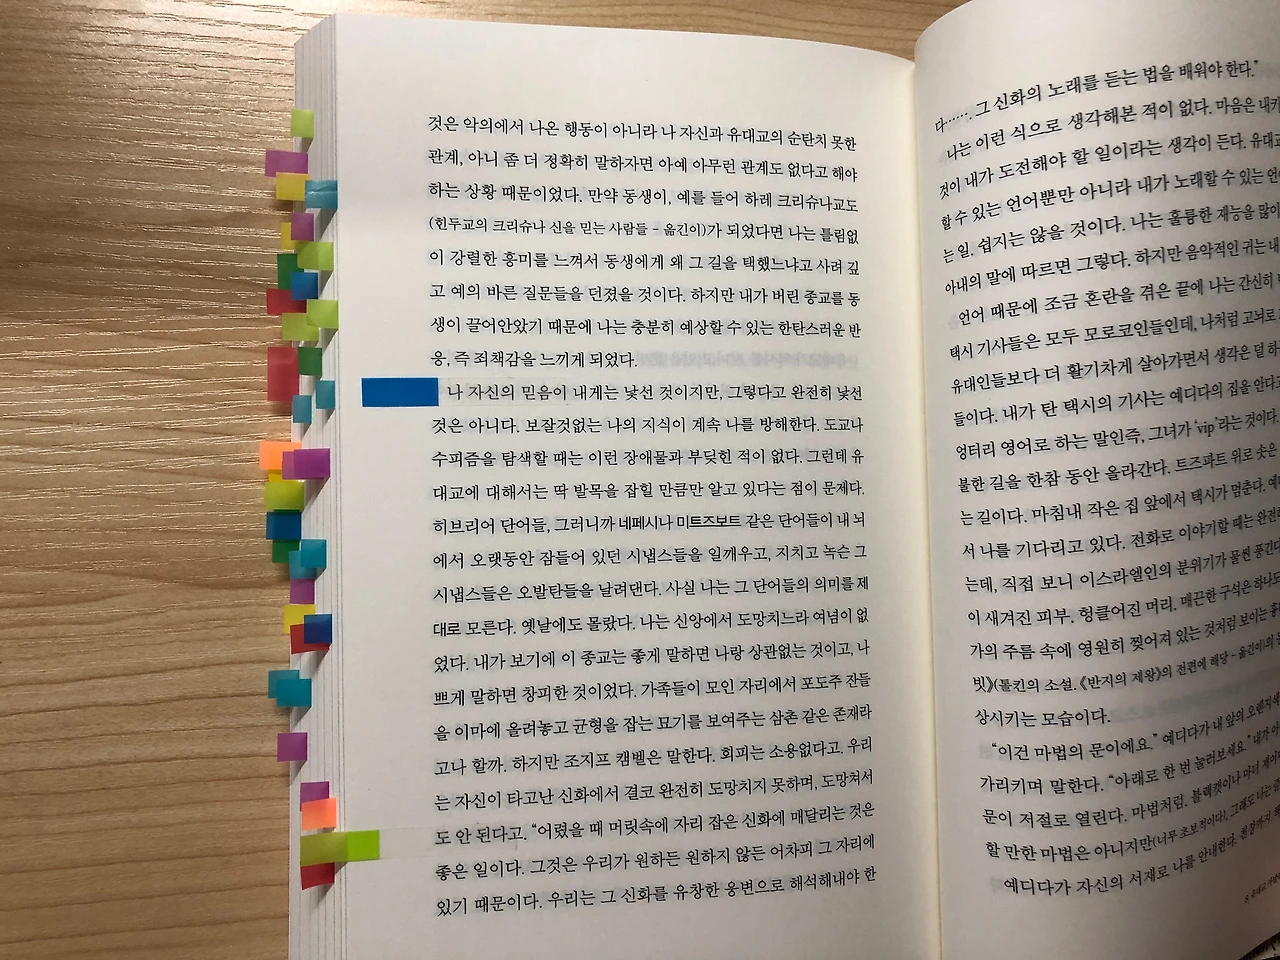 것은 악의에서 나온 행동이 아니라 나 자신과 유대교의 순탄치 못한
관계, 아니 좀 더 정확히 말하자면 아예 아무런 관계도 없다고 해야
하는 상황 때문이었다. 만약 동생이, 예를 들어 하레 크리슈나교도
(힌두교의 크리슈나 신을 믿는 사람들 - 옮긴이)가 되었다면 나는 틀림없
이 강렬한 흥미를 느껴서 동생에게 왜 그 길을 택했느냐고 사려 깊
고 예의 바른 질문들을 던졌을 것이다. 하지만 내가 버린 종교를 동
생이 끌어안았기 때문에 나는 충분히 예상할 수 있는 한탄스러운 반
응, 즉 죄책감을 느끼게 되었다.
나 자신의 믿음이 내게는 낯선 것이지만, 그렇다고 완전히 낯선
것은 아니다. 보잘것없는 나의 지식이 계속 나를 방해한다. 도교나
수피즘을 탐색할 때는 이런 장애물과 부딪힌 적이 없다. 그런데 유
대교에 대해서는 딱 발목을 잡힐 만큼만 알고 있다는 점이 문제다.
히브리어 단어들, 그러니까 네페시나 미트즈보트 같은 단어들이 내 뇌
에서 오랫동안 잠들어 있던 시냅스들을 일깨우고, 지치고 녹슨 그
시냅스들은 오발탄들을 날려댄다. 사실 나는 그 단어들의 의미를 제
대로 모른다. 옛날에도 몰랐다. 나는 신앙에서 도망치느라 여념이 없
었다. 내가 보기에 이 종교는 좋게 말하면 나랑 상관없는 것이고, 나
쁘게 말하면 창피한 것이었다. 가족들이 모인 자리에서 포도주 잔들
을 이마에 올려놓고 균형을 잡는 묘기를 보여주는 삼촌 같은 존재라
고나 할까. 하지만 조지프 캠벨은 말한다. 회피는 소용없다고. 우리
는 자신이 타고난 신화에서 결코 완전히 도망치지 못하며, 도망쳐서
도 안 된다고. “어렸을 때 머릿속에 자리 잡은 신화에 매달리는 것은
좋은 일이다. 그것은 우리가 원하든 원하지 않든 어차피 그 자리에
있기 때문이다. 우리는 그 신화를 유창한 웅변으로 해석해내야 한
다……. 그 신화의 노래를 듣는 법을 배워야 한다.”
나는 이런 식으로 생각해본 적이 없다. 마음은 내키
것이 내가 도전해야 할 일이라는 생각이 든다. 유대교
할 수 있는 언어뿐만 아니라 내가 노래할 수 있는 언어
는 일. 쉽지는 않을 것이다. 나는 훌륭한 재능을 많이
아내의 말에 따르면 그렇다. 하지만 음악적인 귀는 내
언어 때문에 조금 혼란을 겪은 끝에 나는 간신히
택시 기사들은 모두 모로코인들인데, 나처럼 고뇌로
유대인들보다 더 활기차게 살아가면서 생각은 덜 하
들이다. 내가 탄 택시의 기사는 예디다의 집을 안다고
엉터리 영어로 하는 말인즉, 그녀가 ‘vip’라는 것이다.
불한 길을 한참 동안 올라간다. 트즈파트 위로 솟은
는 길이다. 마침내 작은 집 앞에서 택시가 멈춘다. 예디
서 나를 기다리고 있다. 전화로 이야기할 때는 완전히
는데, 직접 보니 이스라엘인의 분위기가 물씬 풍긴다.
이 새겨진 피부. 헝클어진 머리. 매끈한 구석은 하나도
가의 주름 속에 영원히 찢어져 있는 것처럼 보이는
빗》(톨킨의 소설. 《반지의 제왕》의 전편에 해당 - 옮긴이)의
상시키는 모습이다.
“이건 마법의 문이에요.” 예디다가 내 앞의 오렌지색
가리키며 말한다. “아래로 한 번 눌러보세요.” 내가
문이 저절로 열린다. 마법처럼. 블랙캣이나 마녀
할 만한 마법은 아니지만(너무 초보적이다), 그래도 나는
예디다가 자신의 서재로 나를 안내한다. 천장까지